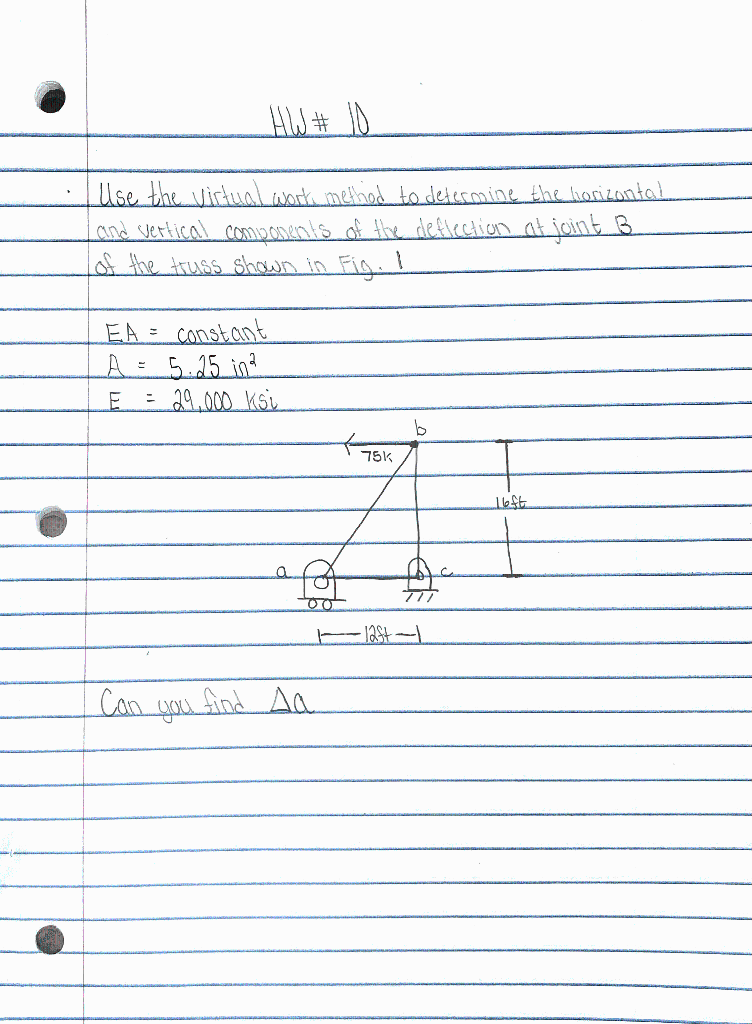 HW# 10
Use the virtual work method to determine the horizontal
and vertical components of the deflection at joint B
of the truss shown in Fig. 1
EA = constant
A = 5.25 in²
E = 29,000 ksi
b
75k
16ft
a
c
12ft
Can you find Δa